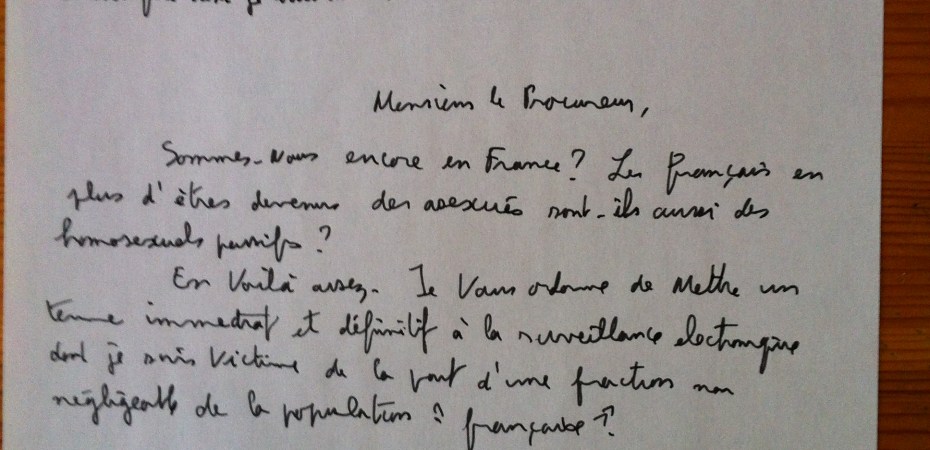 Monsieur le Procureur,
Sommes-Nous encore en France ? Les Français en
plus d'êtres devenus des asexués sont-ils aussi des
homosexuels passifs ?
En Voilà assez. Je Vous ordonne de Mettre un
terme immédiat et définitif à la surveillance electronique
dont je suis Victime de la part d'une fraction non
négligeable de la population ? française ?